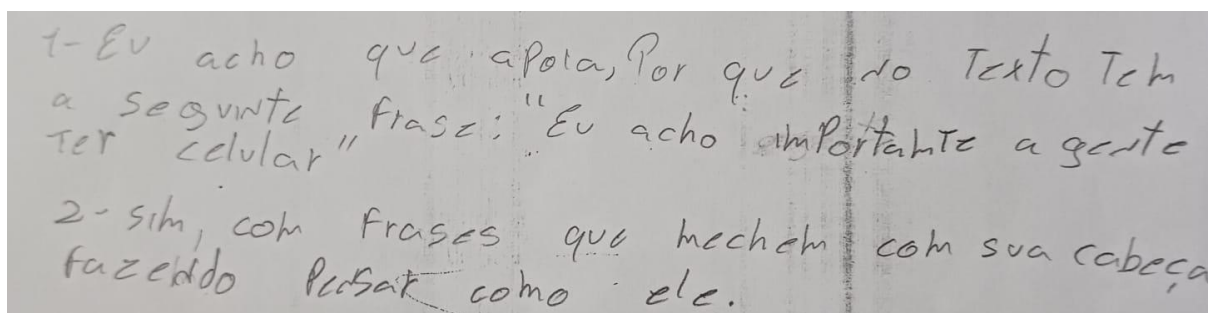 1- Eu acho que apoia, Por que no Texto Tem
a seguinte frase: "Eu acho importante a gente
Ter celular"
2- sim, com frases que mechem com sua cabeça
fazendo Pensar como ele.